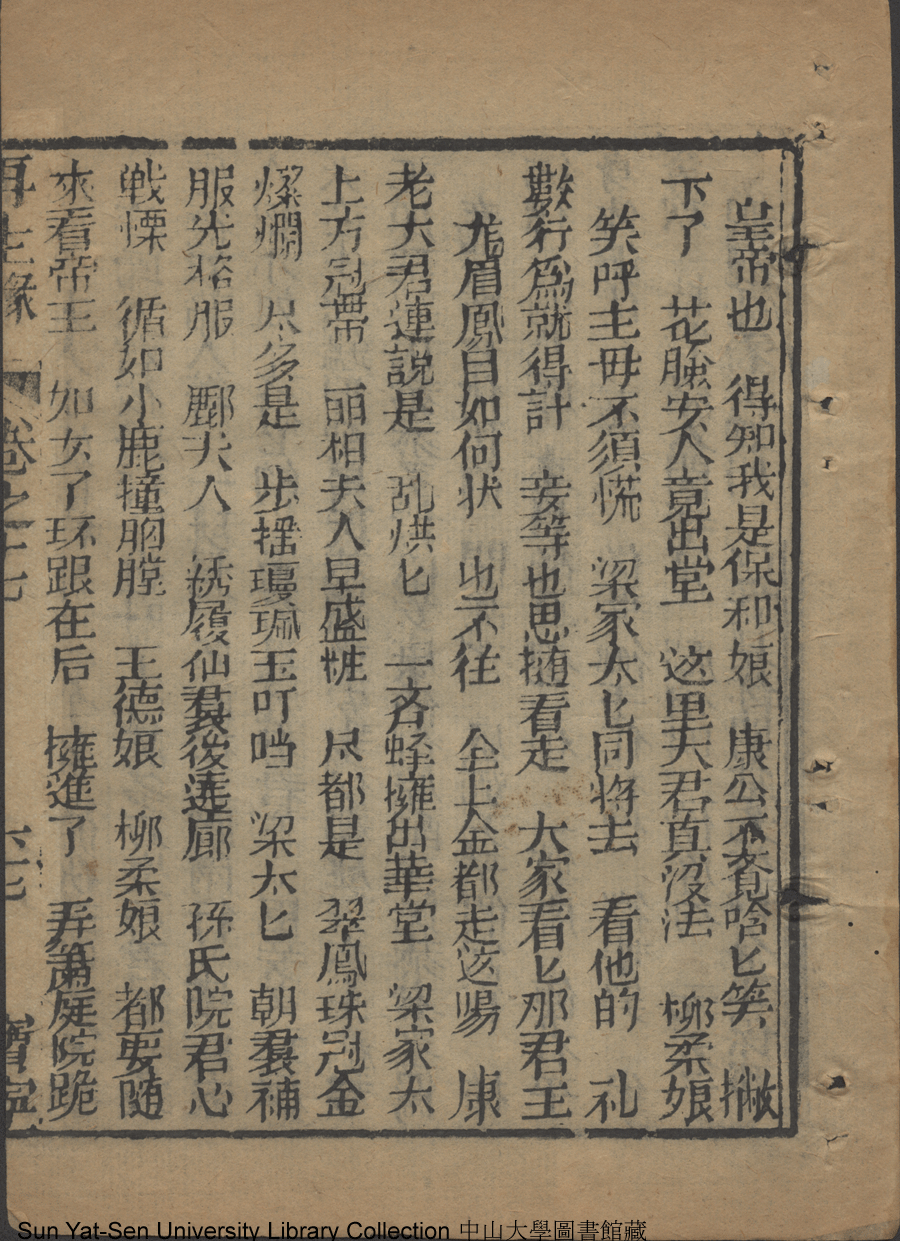 皇帝也　得知我是保和娘　康公不覚哈匕笑　撇
下了　花強安人竟出堂　这里大君直没法　柳柔娘
笑呼主母不須慌　梁家太匕同将去　看他的　礼
數行為就得計　妾等也思随看走　大家看匕那君王
龙眉鳳目如何状　也不徃　仝上金都走这場　康
老大君連説是　乱烘匕　一斉蜂擁出華堂　梁家太
上方冠帶　丽相夫人早盛粧　尽都是　翠鳳珠冠金
燦爛　尽多是　步揺瓊珮玉叮噹　梁太匕　朝裙補
服先格服　酈夫人　綉履仙裙後遶廊　孫氏院君心
戦慄　循如小鹿撞胸膛　王德娘　柳柔娘　都要随
來看帝王　如女了环跟在后　擁進了　弄簫庭院跪
再生緣　卷之十七
中山大學圖書館藏
Sun Yat-Sen University Library Collection